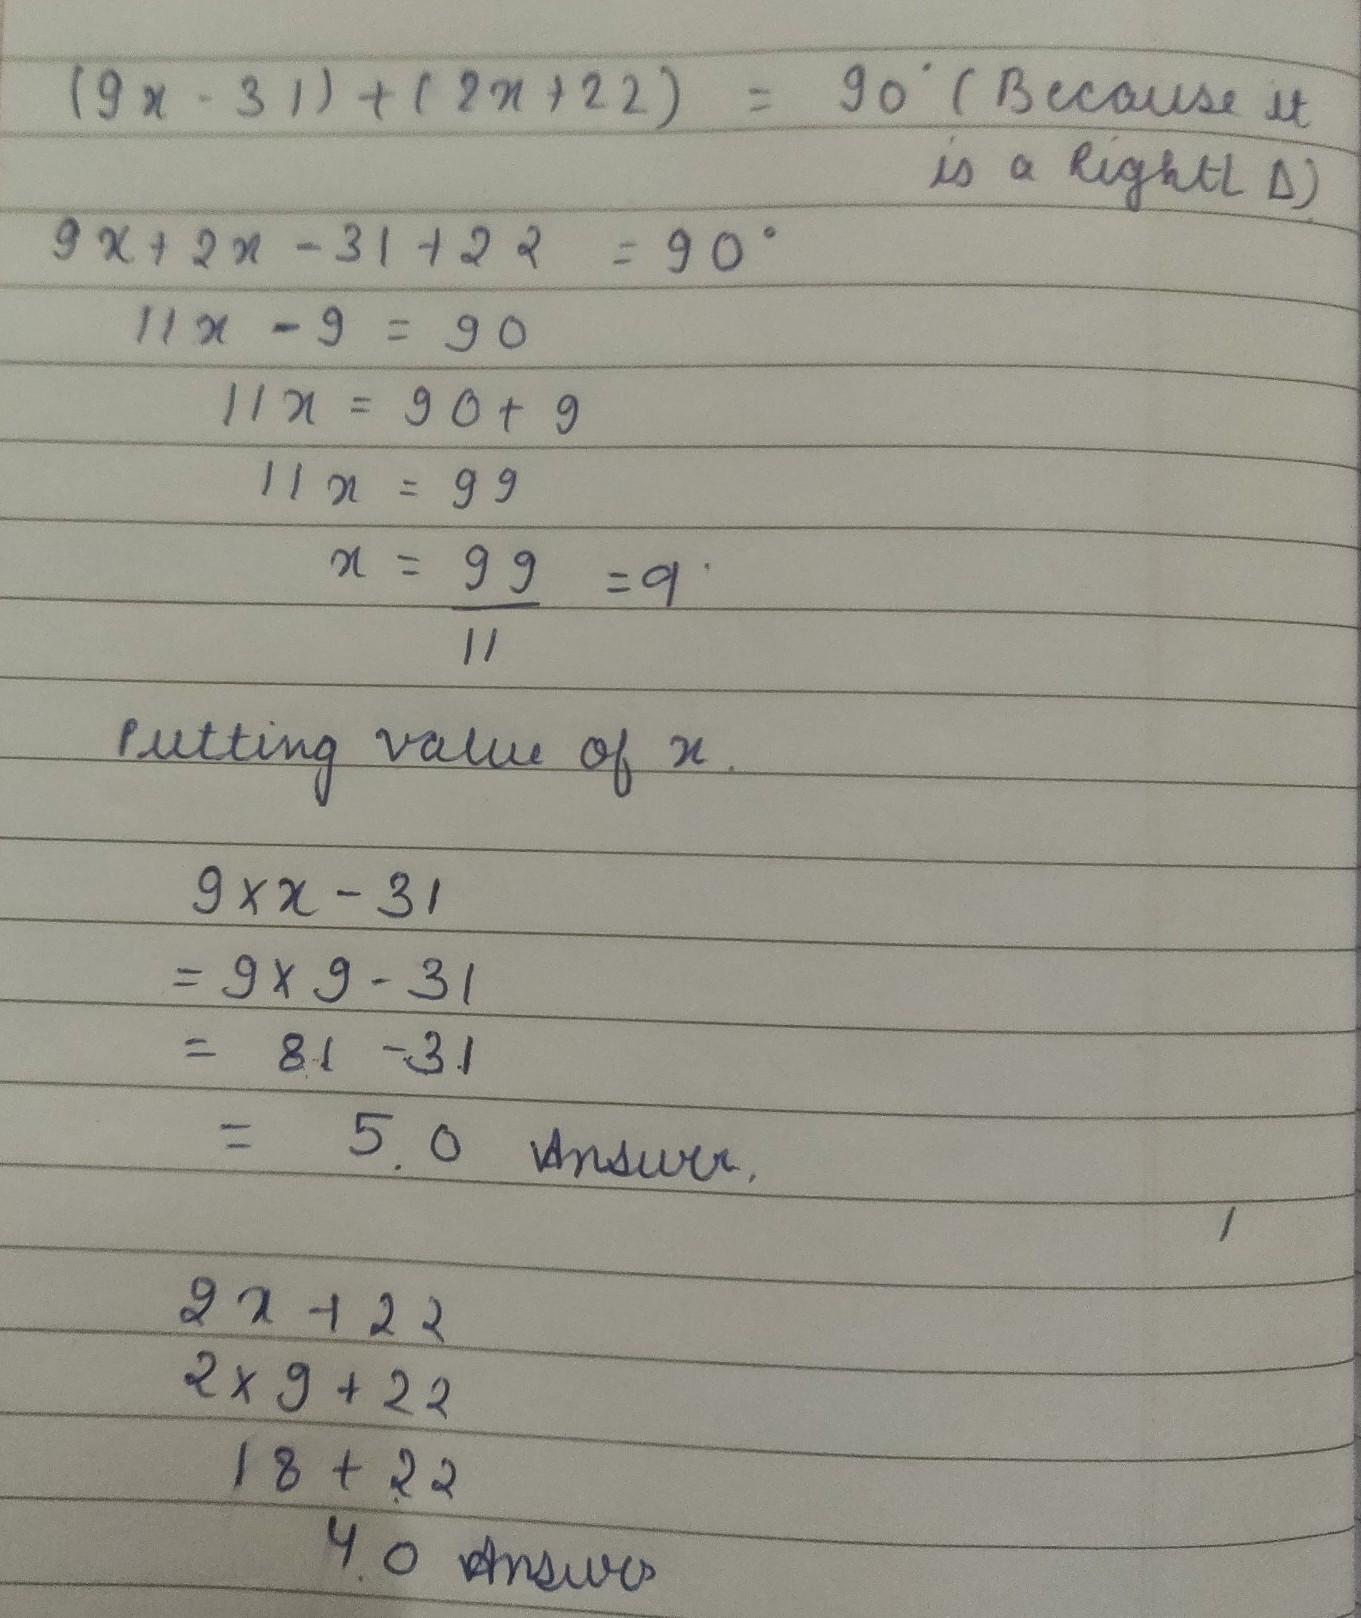 (9x - 31) + (2x + 22) = 90° (Because it
is a Right∠ Δ)
9x + 2x - 31 + 22 = 90°
11x - 9 = 90
11x = 90 + 9
11x = 99
x = 99/11 = 9
Putting value of x.
9 × x - 31
= 9 × 9 - 31
= 81 - 31
= 50 Answer.
2x + 22
2 × 9 + 22
18 + 22
40 Answer